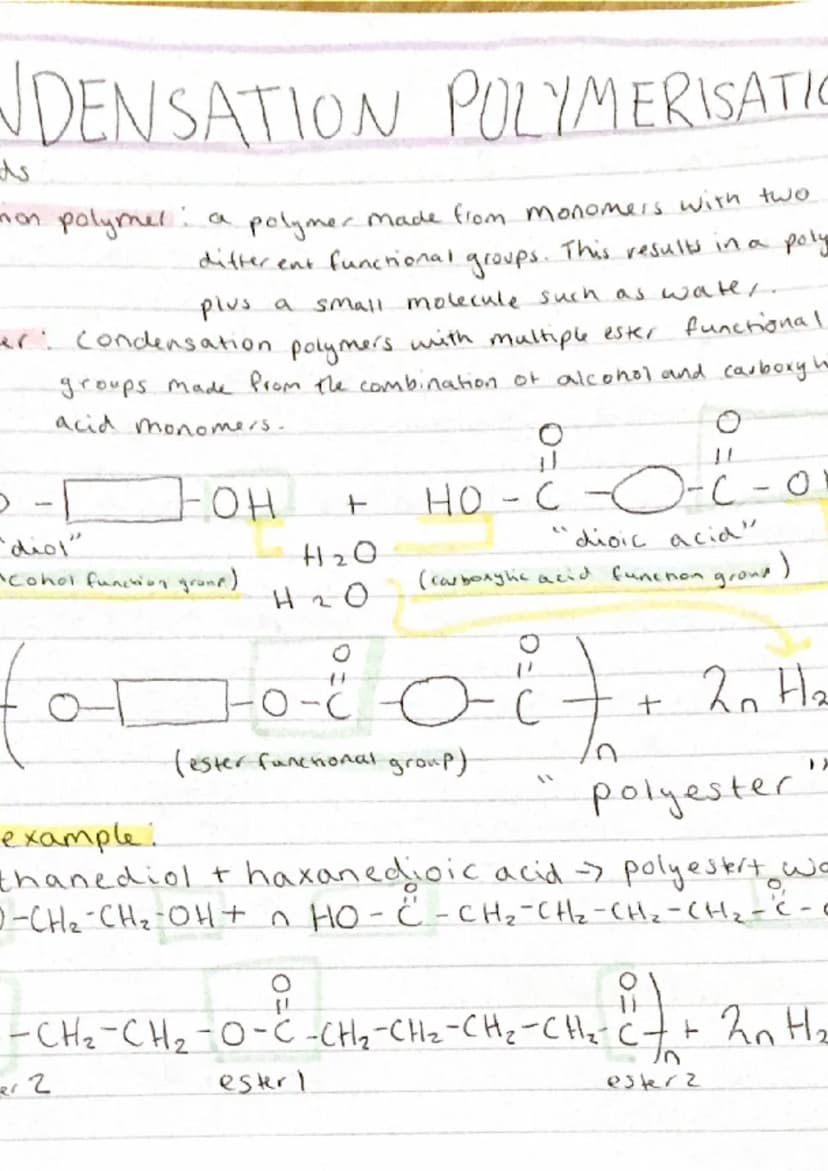 NDENSATION POLYMERISATIO
ds
non polymer: a polymer made from monomers with two
different functional groups. This results in a poly
plus a small molecule such as water.
er: condensation polymers with multiple ester functional
groups made from the combination of alcohol and carboxyl
acid monomers.
O O
|| ||
O - - OH + HO - C - - C - OH
"diol" H2O "dioic acid"
cohol function group) (carboxylic acid function group)
H2O
O O
|| ||
( O - - O - C - - C ) n + 2n H2
(ester functional group)
"polyester"
example:
thanediol + haxanedioic acid → polyester + wa
O O
O - CH2 - CH2 - OH + n HO - C - CH2 - CH2 - CH2 - CH2 - C -
O O
|| ||
- CH2 - CH2 - O - C - CH2 - CH2 - CH2 - CH2 - C ) n + 2n H2
er 2 ester 1 ester 2